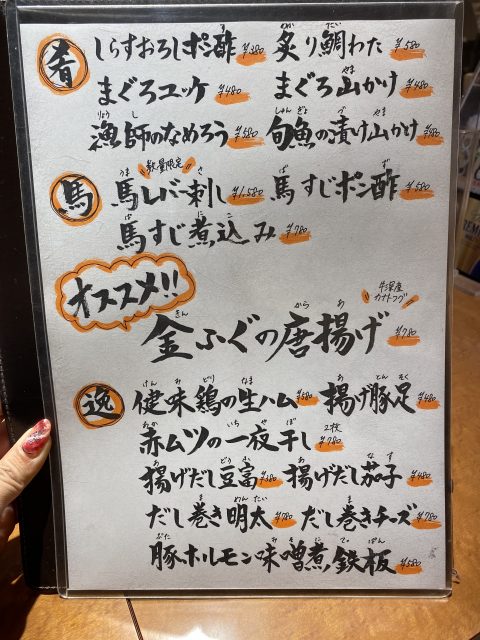 肴 しらすおろしポン酢 ¥380 炙り鯛わた ¥580
まぐろユッケ ¥480 まぐろ山かけ ¥480
漁師のなめろう ¥580 旬魚の漬け山かけ ¥480
数量限定
馬 馬レバー刺し ¥1,580 馬すじポン酢 ¥580
馬すじ煮込み ¥780
オススメ!!
金ふぐの唐揚げ ¥780
逸 健味鶏の生ハム ¥580 揚げ豚足 ¥480
赤ムツの一夜干し 2枚 ¥780
揚げだし豆富 ¥380 揚げだし茄子 ¥480
だし巻き明太 ¥780 だし巻きチーズ ¥780
豚ホルモン味噌煮鉄板 ¥580